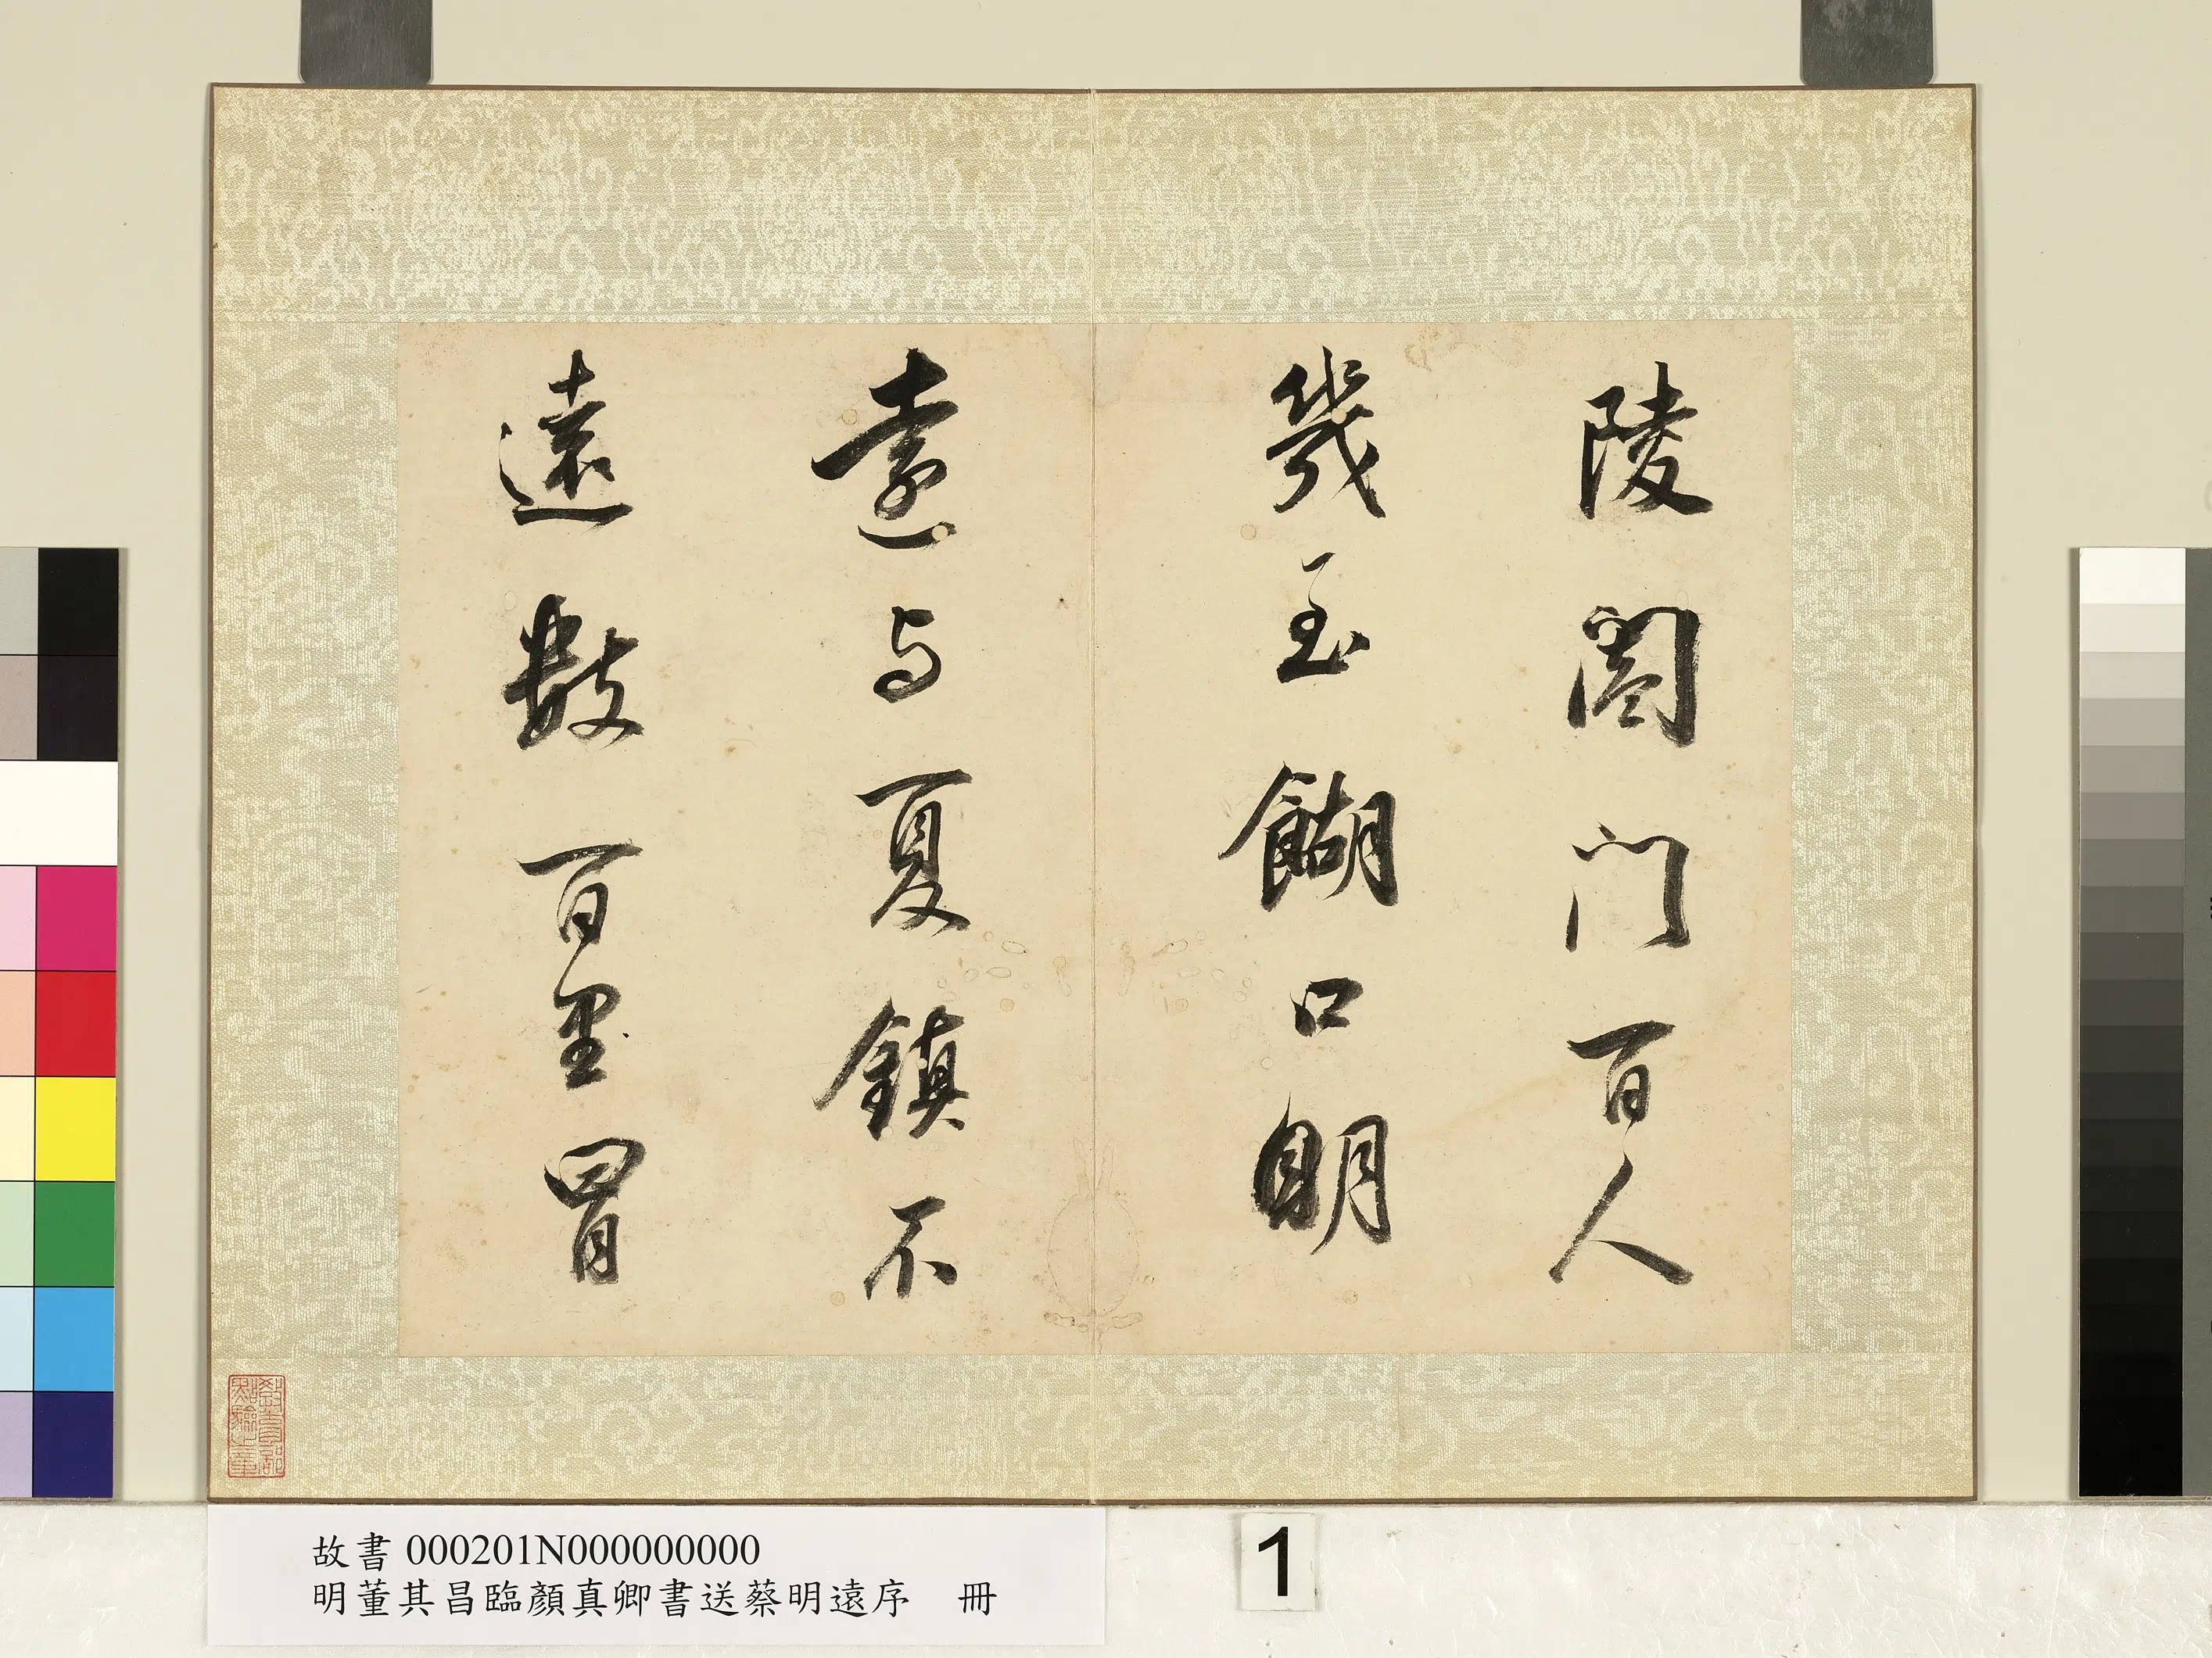 陵闔門百人
幾至餬口眀
遠与夏鎮不
遠數百里冒
教育部
點驗之章
故書 000201N000000000
明董其昌臨顏真卿書送蔡明遠序 冊
1